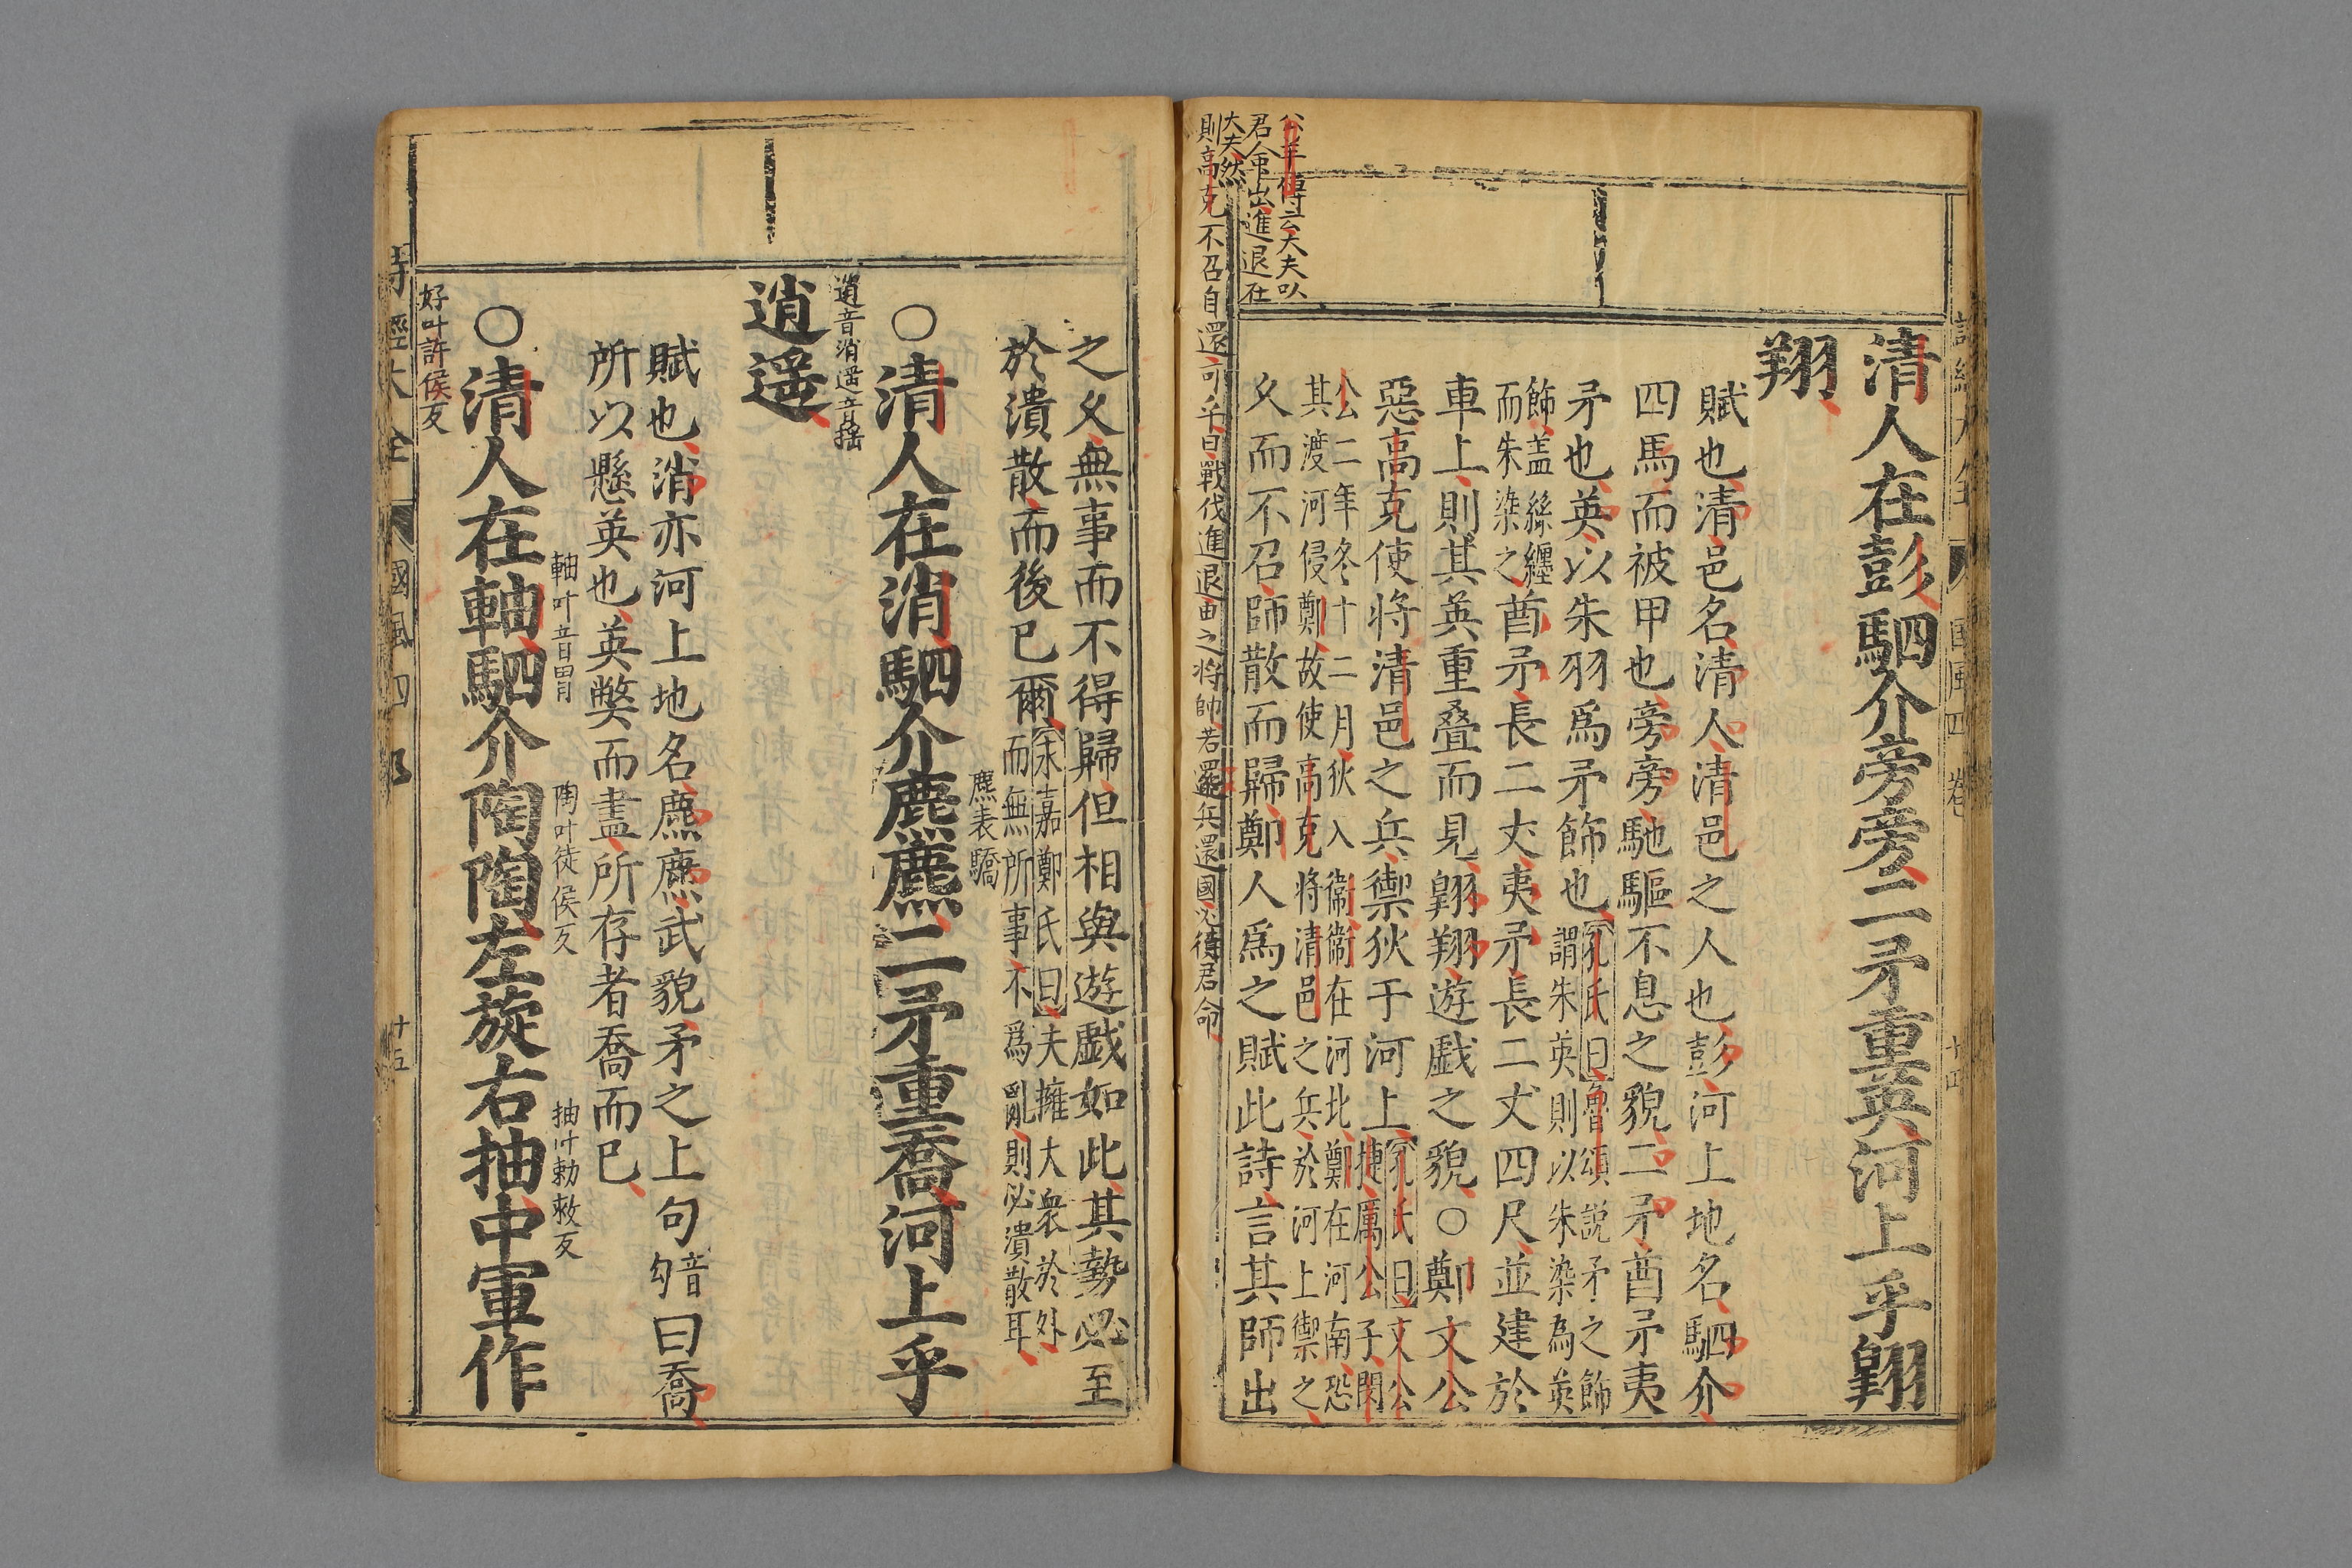 清人在彭駟介旁旁二矛重英河上乎翱
翔
賦也清邑名清人清邑之人也彭河上地名駟介
四馬而被甲也旁旁馳驅不息之貌二矛酋矛夷
矛也英以朱羽爲矛飾也孔氏曰魯頌説矛之飾
謂朱英則以朱染為英
飾蓋絲纏
而朱染之酋矛長二丈夷矛長二丈四尺並建於
車上則其英重叠而見翱翔遊戯之貌○鄭文公
惡高克使将清邑之兵禦狄于河上孔氏曰文公
捷厲公子閔
公二年冬十二月狄入衞衞在河北鄭在河南恐
其渡河侵鄭故使高克将清邑之兵於河上禦之
久而不召師散而歸鄭人爲之賦此詩言其師出
傳云大夫以
君命出進退在
大夫然
則高克不召自還
曰戰伐進退由之将帥若罷兵還國必待君命
之久無事而不得歸但相與遊戯如此其勢必至
於潰散而後已爾朱嘉鄭氏曰夫擁大衆於外
而無所事不爲亂則必潰散耳
麃表驕
○清人在消駟介麃麃二矛重喬河上乎
逍音消遥音揺
逍遥
賦也消亦河上地名麃麃武貌矛之上句音勾曰喬
所以懸英也英獘而盡所存者喬而已
軸叶音胃 陶叶徒侯反 抽叶勅救反
○清人在軸駟介陶陶左旋右抽中軍作
好叶許侯反
詩經大全 國風四 十五